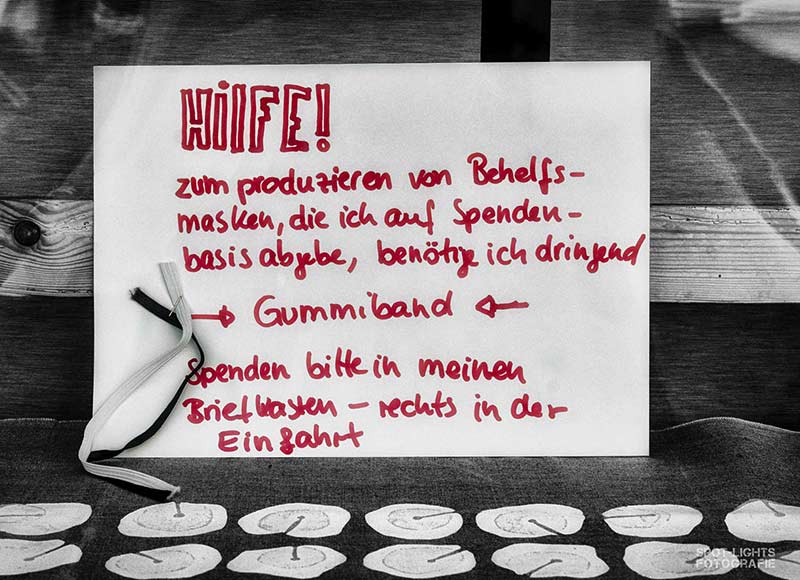 HiLFE!
zum produzieren von Behelfs-
masken, die ich auf Spenden-
basis abgebe, benötige ich dringend
→ Gummiband ←
Spenden bitte in meinen
Briefkasten – rechts in der
Einfahrt
SPOT-LIGHTS
FOTOGRAFIE